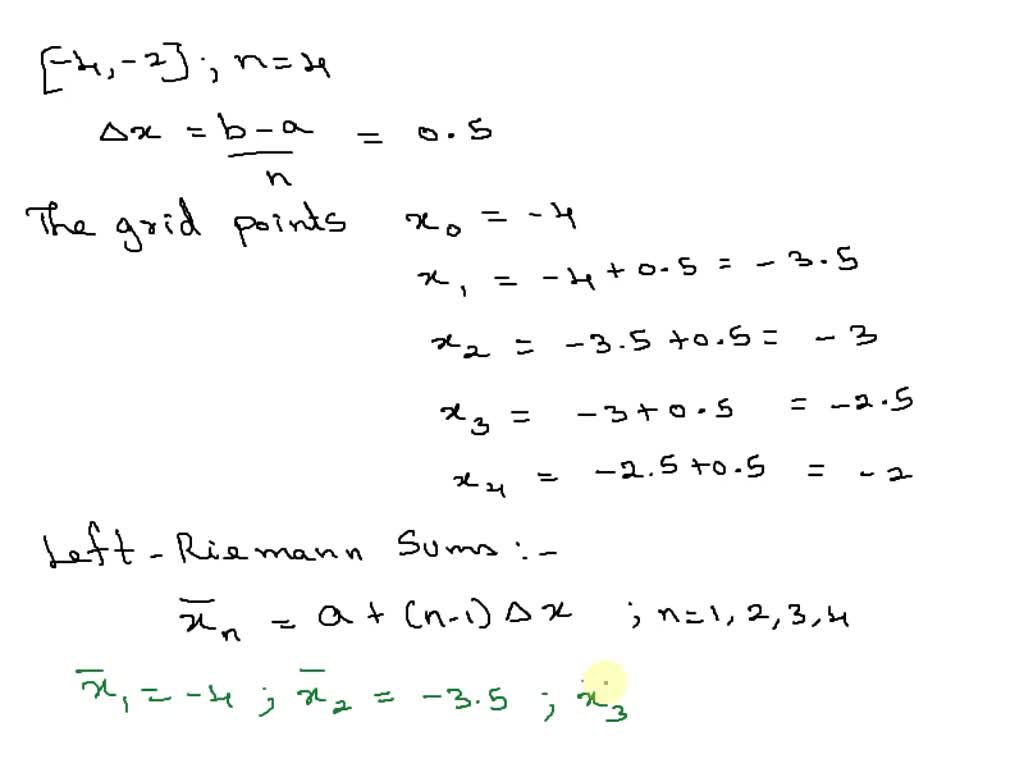 [-4, -2] ; n = 4
Δx = b - a / n = 0.5
The grid points x₀ = -4
x₁ = -4 + 0.5 = -3.5
x₂ = -3.5 + 0.5 = -3
x₃ = -3 + 0.5 = -2.5
x₄ = -2.5 + 0.5 = -2
Left - Riemann Sums :-
x̄ₙ = a + (n-1) Δx ; n = 1, 2, 3, 4
x̄₁ = -4 ; x̄₂ = -3.5 ; x₃